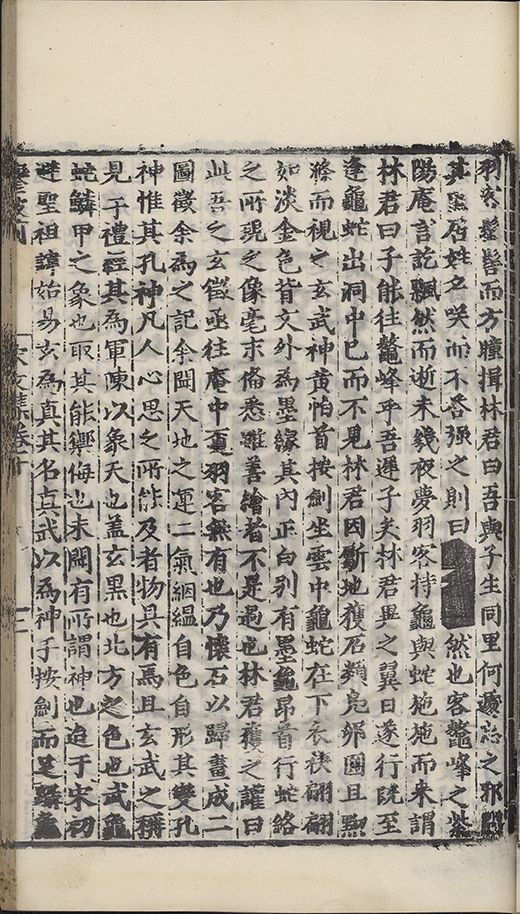 羽客髽髻而方瞳揖林君曰吾與子生同里何遽忘之邪問
其里居姓名哭而不答强之則曰然也客鼇峰之紫
陽庵言訖飄然而逝未幾夜夢羽客持龜與蛇施施而来謂
林君曰子能往鼇峰乎吾遲子矣林君異之翼日遂行既至
逢龜蛇出洞中已而不見林君因斵地獲石類鳬卵圓且黑
滌而視之玄武神黄帕首按劍坐雲中龜蛇在下衣袂翩翩
如淡金色背文外為墨緣其内正白别有墨龜昻首行蛇絡
之所覩之像毫末俻悉雖善繪者不是過也林君獲之讙曰
此吾之玄徵亟往庵中覔羽客無有也乃懐石以歸畫成二
圖徵余為之記余聞天地之運二氣絪緼自色自形其變孔
神惟其孔神凡人心思之所能及者物具有焉且玄武之稱
見于禮經其為軍陳以象天也盖玄黒也北方之色也武龜
蛇鱗甲之象也取其能禦侮也未聞有所謂神也迨于宋初
避聖祖諱始易玄為真其名真武以為神手按劍而足躡龜
文集卷十